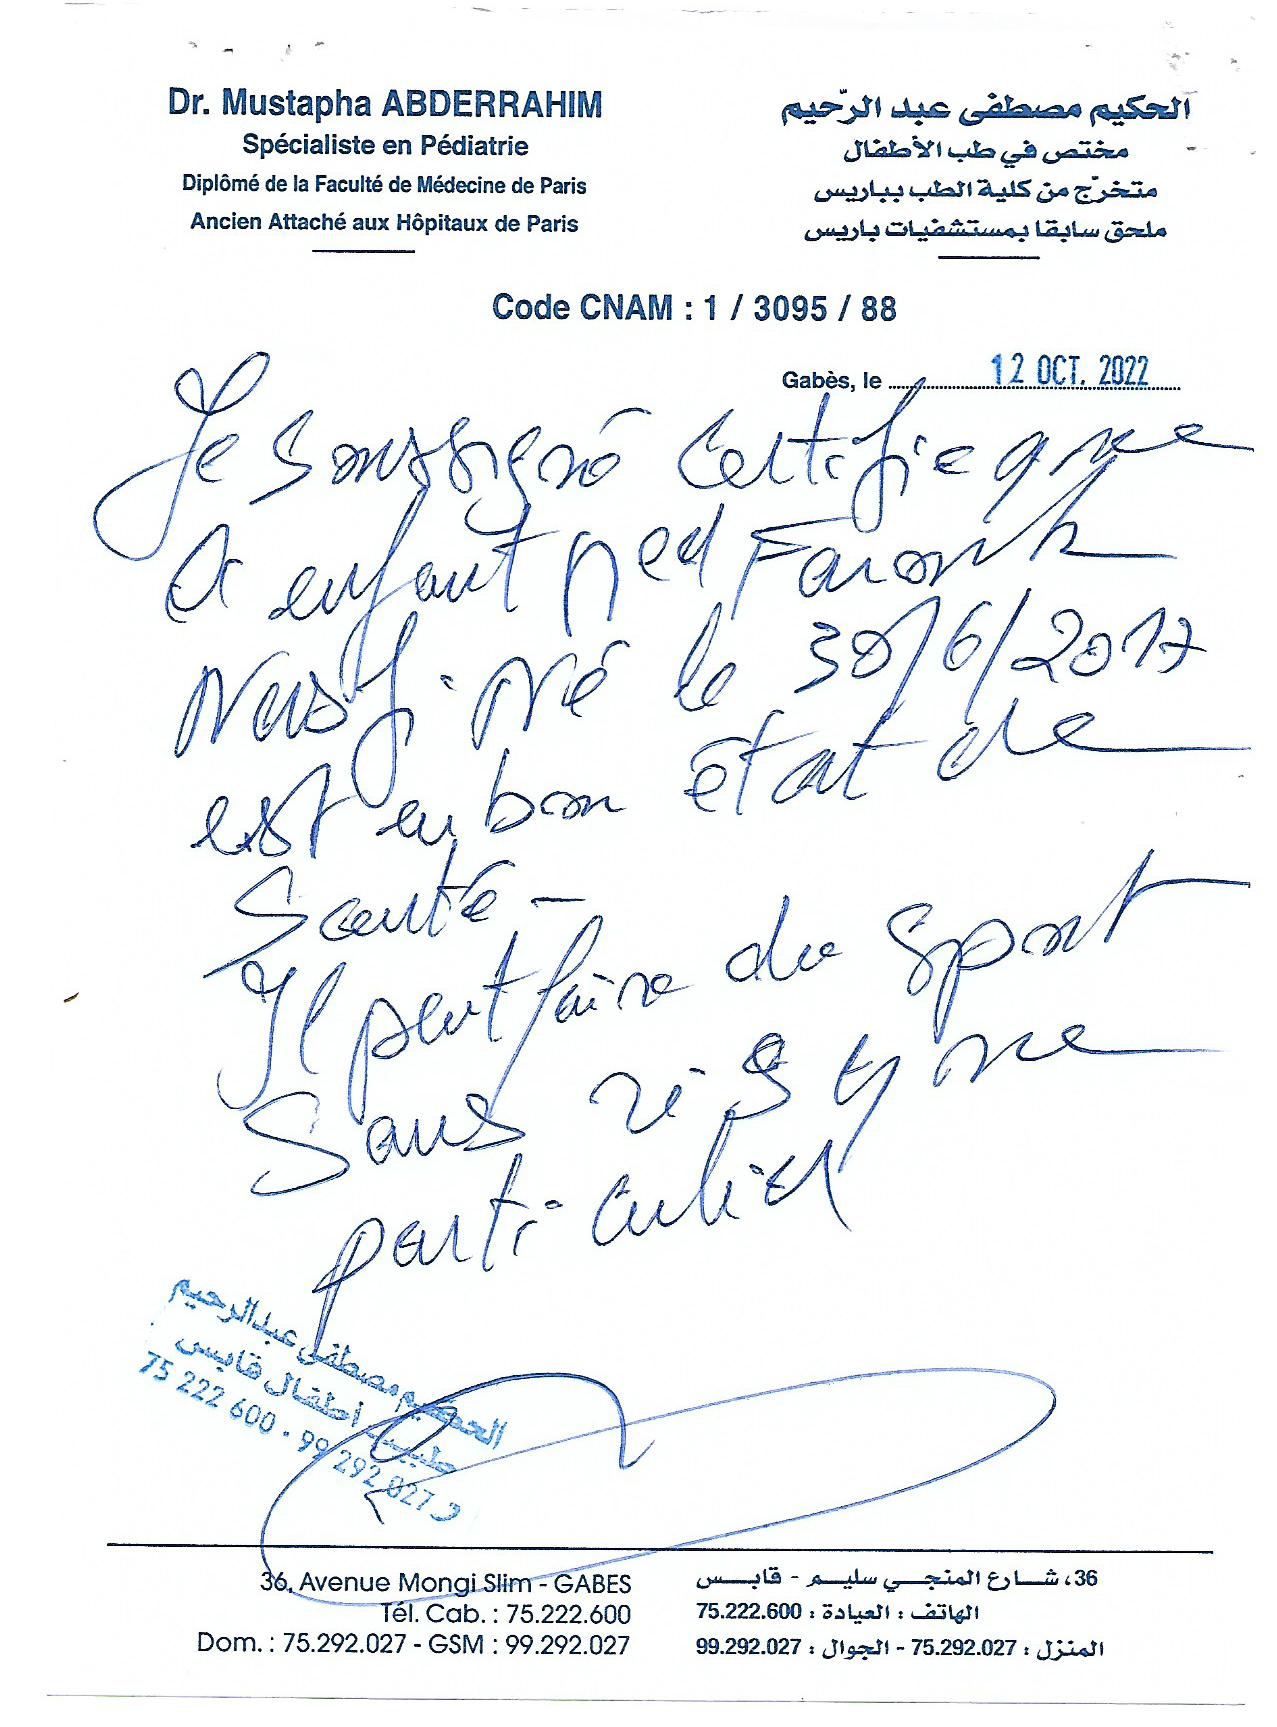 Dr. Mustapha ABDERRAHIM
Spécialiste en Pédiatrie
Diplômé de la Faculté de Médecine de Paris
Ancien Attaché aux Hôpitaux de Paris
الحكيم مصطفى عبد الرّحيم
مختص في طب الأطفال
متخرّج من كلية الطب بباريس
ملحق سابقا بمستشفيات باريس
Code CNAM : 1 / 3095 / 88
Gabès, le 12 OCT. 2022
Je soussigné certifie que
enfant Med Farouk
né le 30/6/2017
est en bon état de
santé -
Il peut faire du sport
sans risque
particulier
الحكيم مصطفى عبدالرحيم
طبيب أطفال قابس
75 222 600 - 99 292 027
36, Avenue Mongi Slim - GABES
Tél. Cab. : 75.222.600
Dom. : 75.292.027 - GSM : 99.292.027
36، شارع المنجي سليم - قابس
الهاتف : العيادة : 75.222.600
المنزل : 75.292.027 - الجوال : 99.292.027